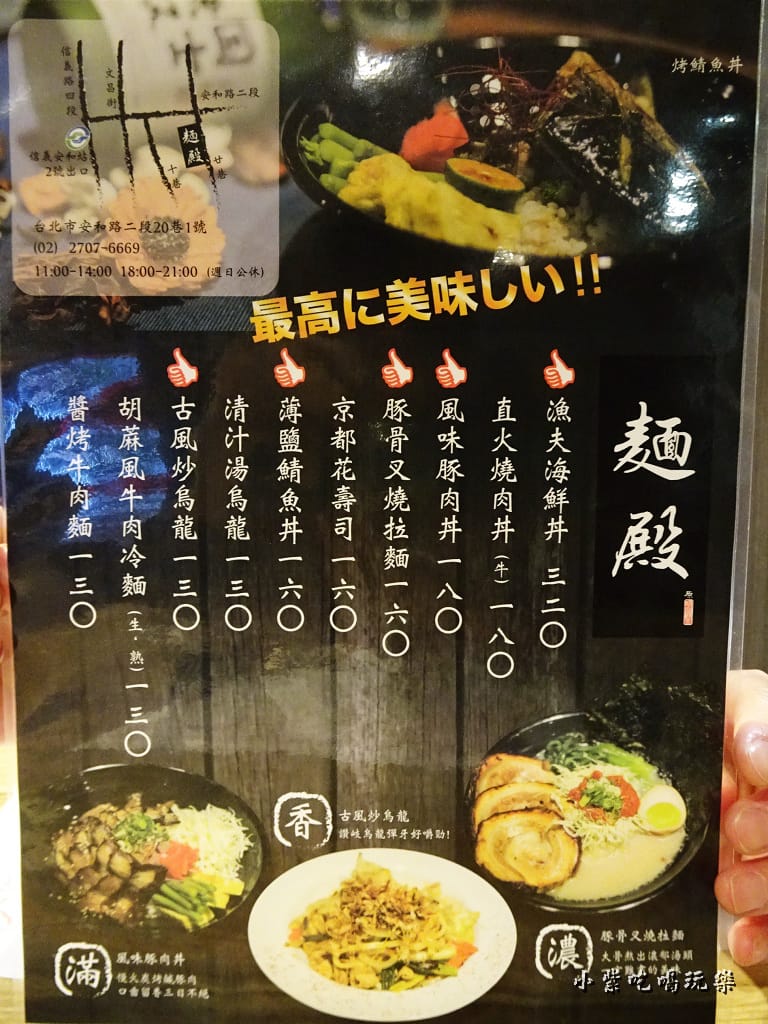 信義路四段
文昌街
安和路二段
麵殿
信義安和站
2號出口
十巷
廿巷
台北市安和路二段20巷1號
(02) 2707-6669
11:00-14:00 18:00-21:00 (週日公休)
烤鯖魚丼
最高に美味しい!!
麵殿
漁夫海鮮丼 三二〇
直火燒肉丼(牛)一八〇
風味豚肉丼 一八〇
豚骨叉燒拉麵一六〇
京都花壽司 一六〇
薄鹽鯖魚丼 一六〇
清汁湯烏龍 一三〇
古風炒烏龍 一三〇
胡蔴風牛肉冷麵(生.熟)一三〇
醬烤牛肉麵 一三〇
香
古風炒烏龍
讚岐烏龍彈牙好嚼勁!
滿
風味豚肉丼
慢火炭烤鹹豚肉
口齒留香三日不絕
濃
豚骨叉燒拉麵
大骨熬出濃郁湯頭
的美味
小紫吃喝玩樂